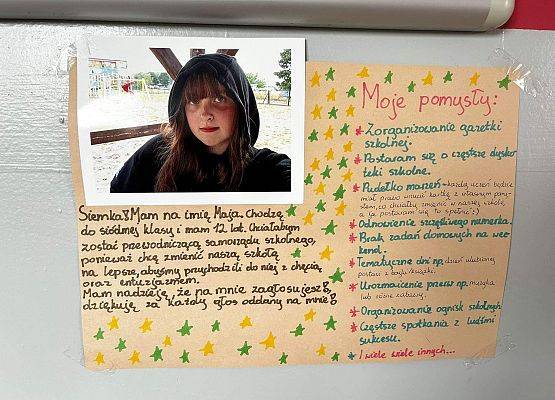 Siemka! Mam na imię Maja. Chodzę
do siódmej klasy i mam 12 lat. Chciałabym
zostać przewodniczącą samorządu szkolnego,
ponieważ chcę zmienić naszą szkołę
na lepsze, abyśmy przychodzili do niej z chęcią
oraz entuzjazmem.
Mam nadzieję, że na mnie zagłosujesz!,
dziękuję za każdy głos oddany na mnie!
Moje pomysły:
* Zorganizowanie gazetki
szkolnej.
* Postaram się o częstsze dysko
teki szkolne.
* Pudełko marzeń - każdy uczeń będzie
miał prawo wrzucić kartkę z własnym pomy-
słem, co chciałby zmienić w naszej szkole,
a ja postaram się to spełnić :)
* Odnowienie szczęśliwego numerka.
* Brak zadań domowych na wee
kend.
* Tematyczne dni np. dzień ulubionej
postaci z bajki/książki.
* Urozmaicenie przerw np. muzyka
lub różne zabawy.
* Organizowanie ognisk szkolnych
* Częstsze spotkania z ludźmi
sukcesu.
* I wiele wiele innych...